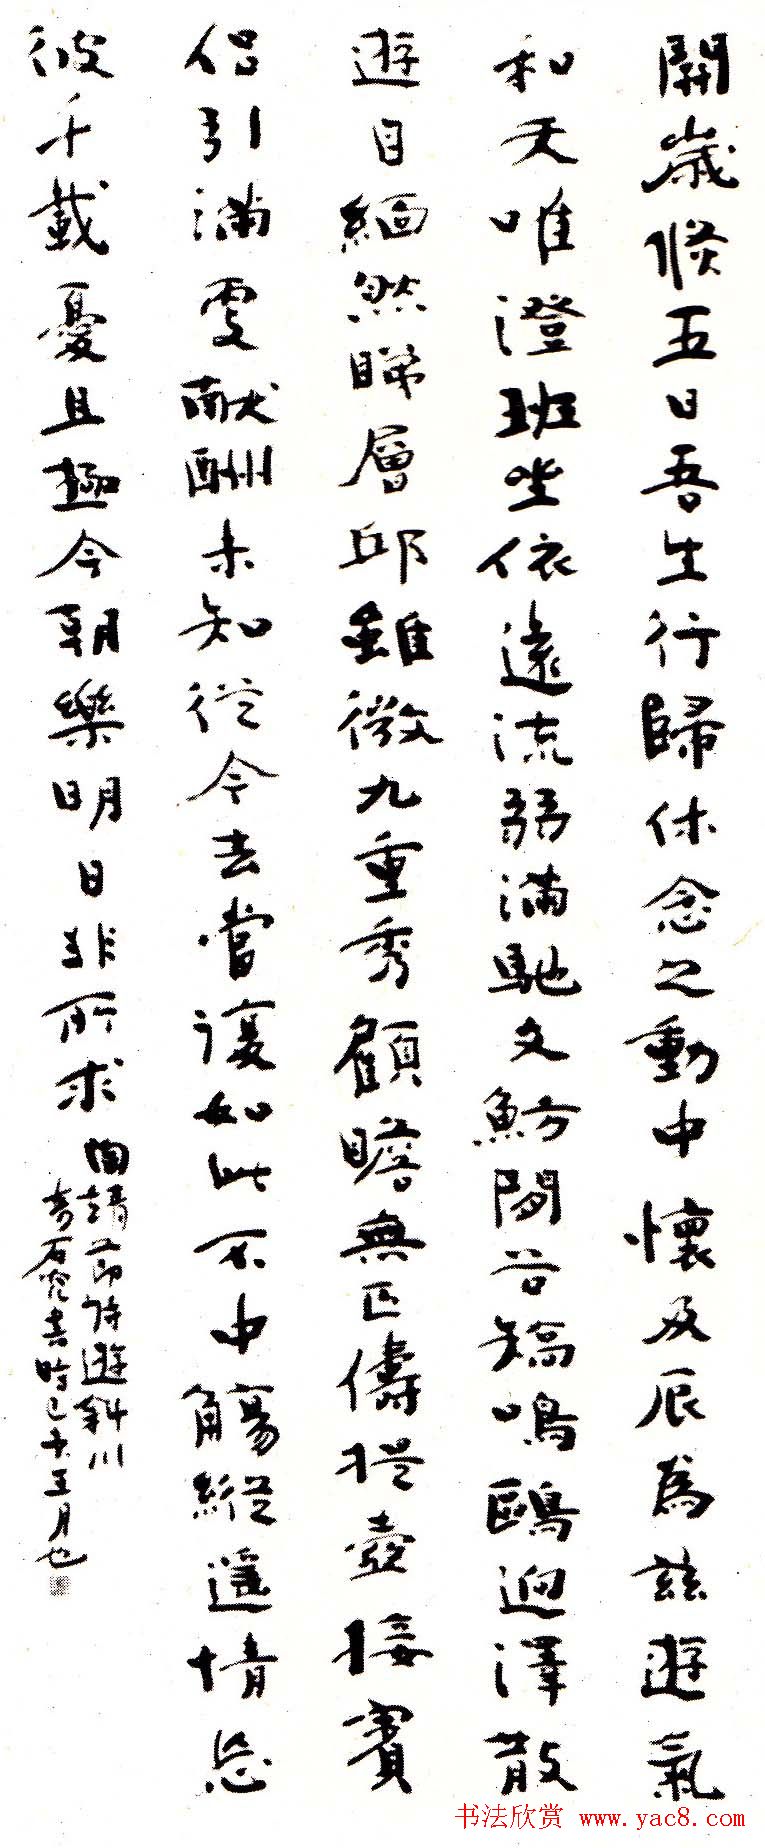 開歲倏五日吾生行歸休念之動中懷及辰為茲遊氣
和天唯澄班坐依遠流弱滿馳文魴閒谷矯鳴鷗迥澤散
遊目緬然睇層邱雖微九重秀顧瞻無匹儔提壺接賓
侶引滿更献酬未知從今去當復如此不中觴縱遙情忘
彼千載憂且極今朝樂明日非所求
陶靖節詩遊斜川
石書時五月也
书法欣赏 www.yac8.com